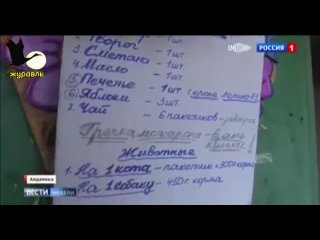 журавль
РОССИЯ 1
Творог - 1шт.
3. Сметана - 1шт.
4. Масло - 1шт.
5. Печенье - 1 шт
6. Яблоки - 3 шт.
7. Чай - 6 пакетиков
Гречка
Животные
1. На 1 кота - пакетик +
На 1 собаку - 450г корма
Авдеевка
ВЕСТИ НЕДЕЛИ